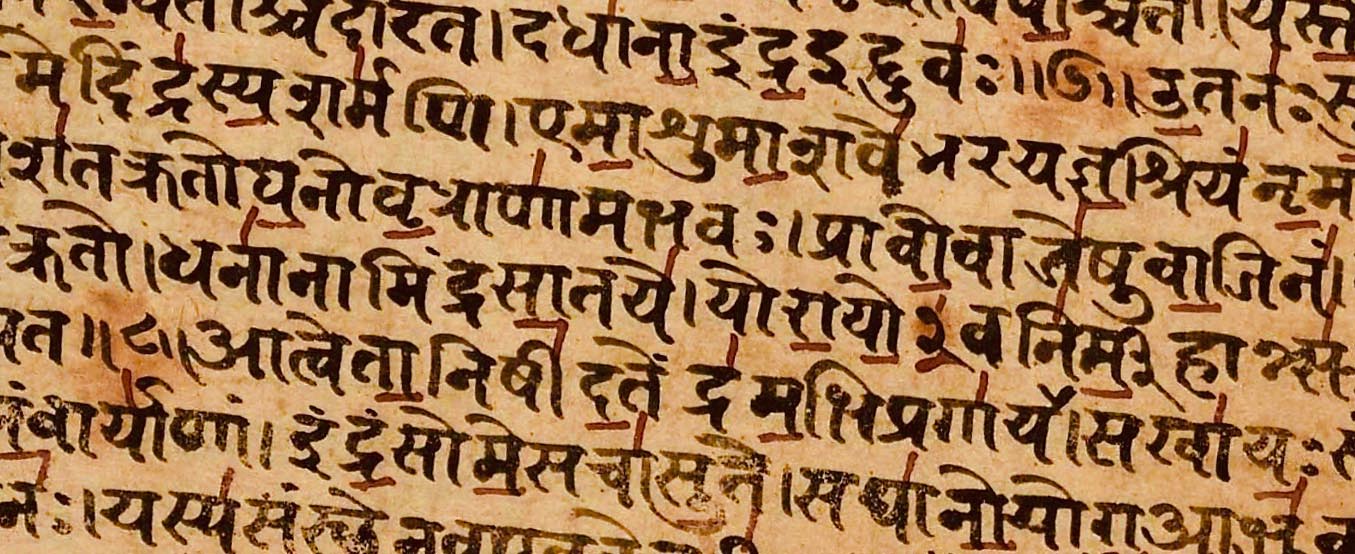 श्चिदारत। दधानाइंद्रइद्दुवः॥७॥उतनः
मेदिंद्रस्यशर्मणि।एमाशुमाशवेभरयज्ञश्रियंनृम
शतक्रतोघनोवृत्राणामभवः।प्रावोवाजेषुवाजिनं।
क्रतो।धनानामिंद्रसातये।योरायो३वनिर्म३हान्त्स
यत॥८॥आत्वेतानिषीदतेंद्रमभिप्रगायत।सखायः
नंवार्याणां।इंद्रंसोमेसचासुते।सघानोयोगआभुव
नः।यस्यसंस्थेनवृण्वते